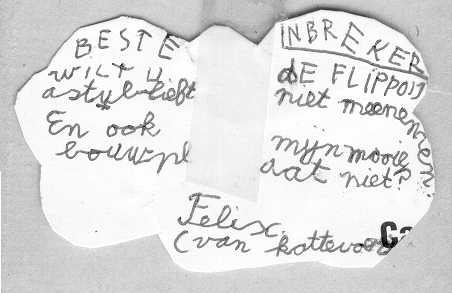 BESTE INBREKER
WILT U dE FLIPPOO
astublieft niet meenemen
En ook mijn mooie
bouwpl aat niet?
Felix.
(van kattevoer
Ca